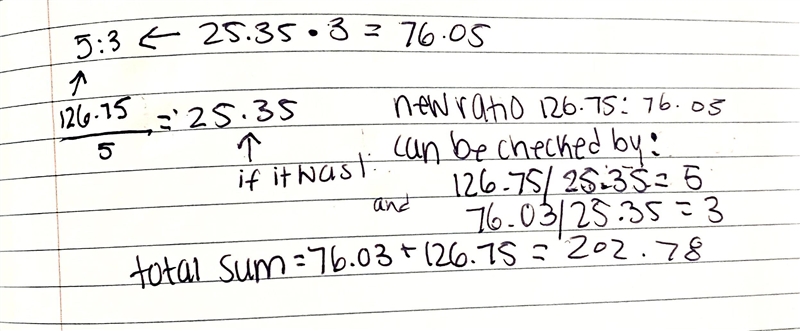 5:3 ← 25.35 • 3 = 76.05
↑
126.75/5 = 25.35
↑
if it was 1.
new ratio 126.75 : 76.03
can be checked by:
126.75/25.35 = 5
and 76.03/25.35 = 3
total sum = 76.03 + 126.75 = 202.78